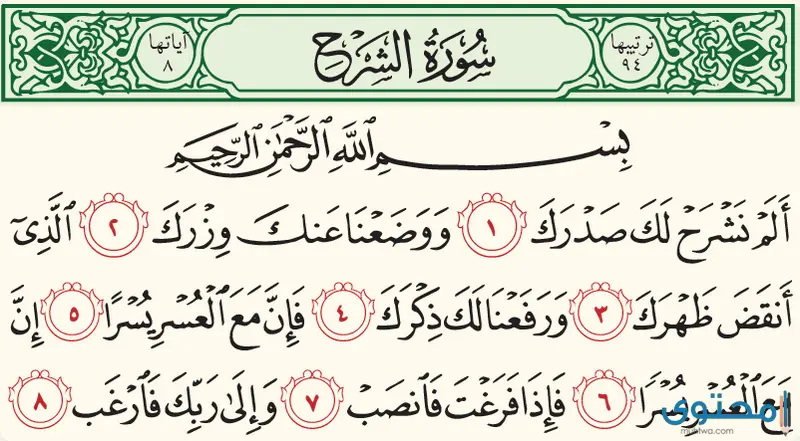 ترتيبها ٩٤ سُورَةُ الشَّرْحِ آياتها ٨
بِسْمِ ٱللَّهِ ٱلرَّحْمَٰنِ ٱلرَّحِيمِ
أَلَمْ نَشْرَحْ لَكَ صَدْرَكَ ١ وَوَضَعْنَا عَنكَ وِزْرَكَ ٢ ٱلَّذِىٓ
أَنقَضَ ظَهْرَكَ ٣ وَرَفَعْنَا لَكَ ذِكْرَكَ ٤ فَإِنَّ مَعَ ٱلْعُسْرِ يُسْرًا ٥ إِنَّ
مَعَ ٱلْعُسْرِ يُسْرًا ٦ فَإِذَا فَرَغْتَ فَٱنصَبْ ٧ وَإِلَىٰ رَبِّكَ فَٱرْغَب ٨
محتوى
muhtwa.com